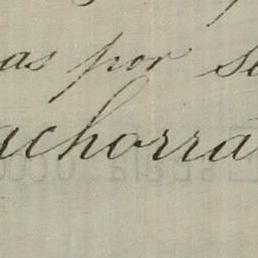 as por s
achorra